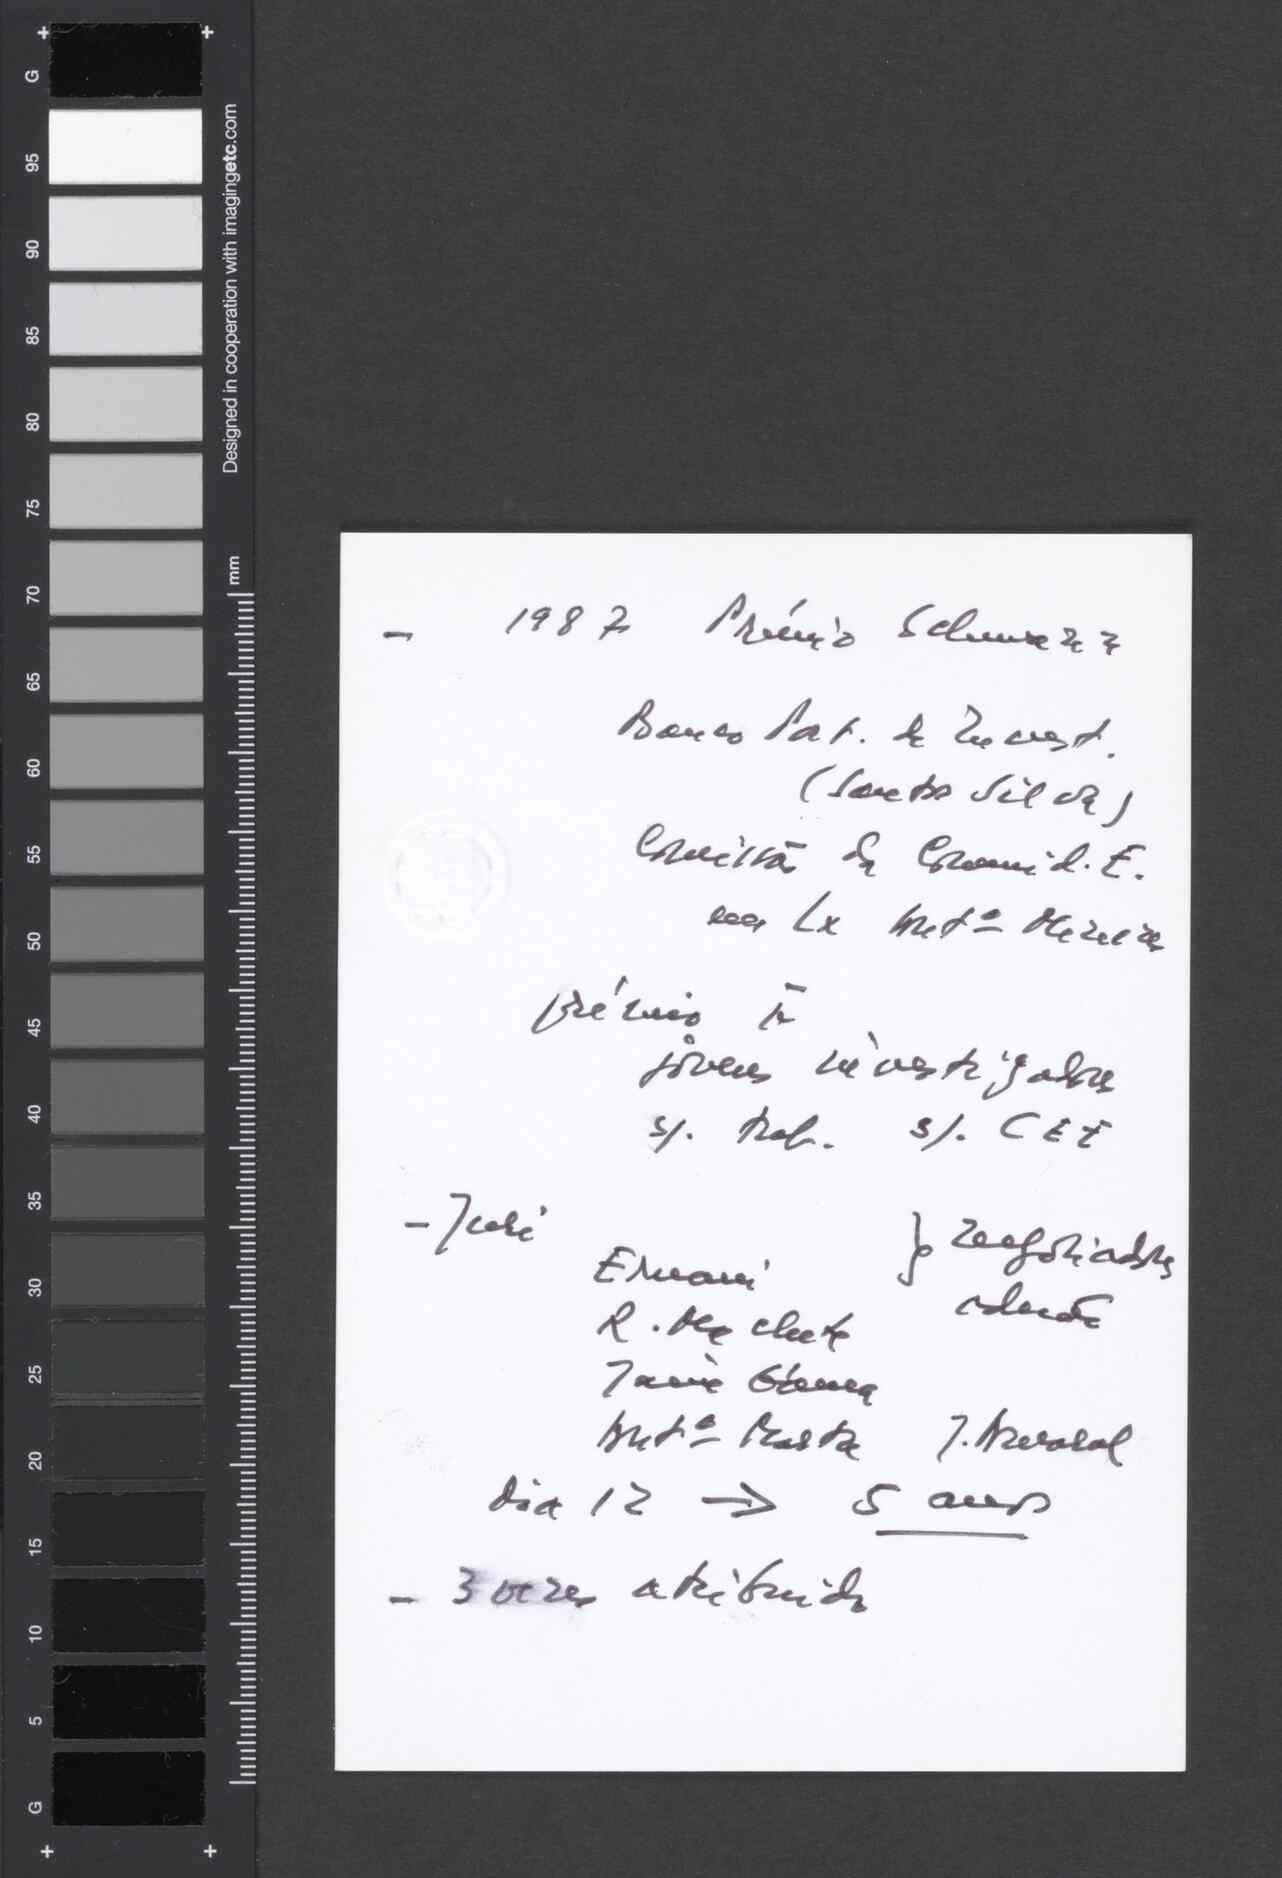 G
95
90
85
80
75
70
65
60
55
50
45
40
35
30
25
20
15
10
5
G
Designed in cooperation with imagingetc.com
mm
- 1987 Prémio
Banco Port. de Invest.
(Santos Silva)
Comissão da Comunid. E.
em Lx
prémio
jovens investigadores
s/. trab. s/. CEE
- Juri
Ernani } negociadores
R. Machete adesão
Jaime Gama
J. Amaral
dia 12 → 5 anos
- 3 vezes atribuido